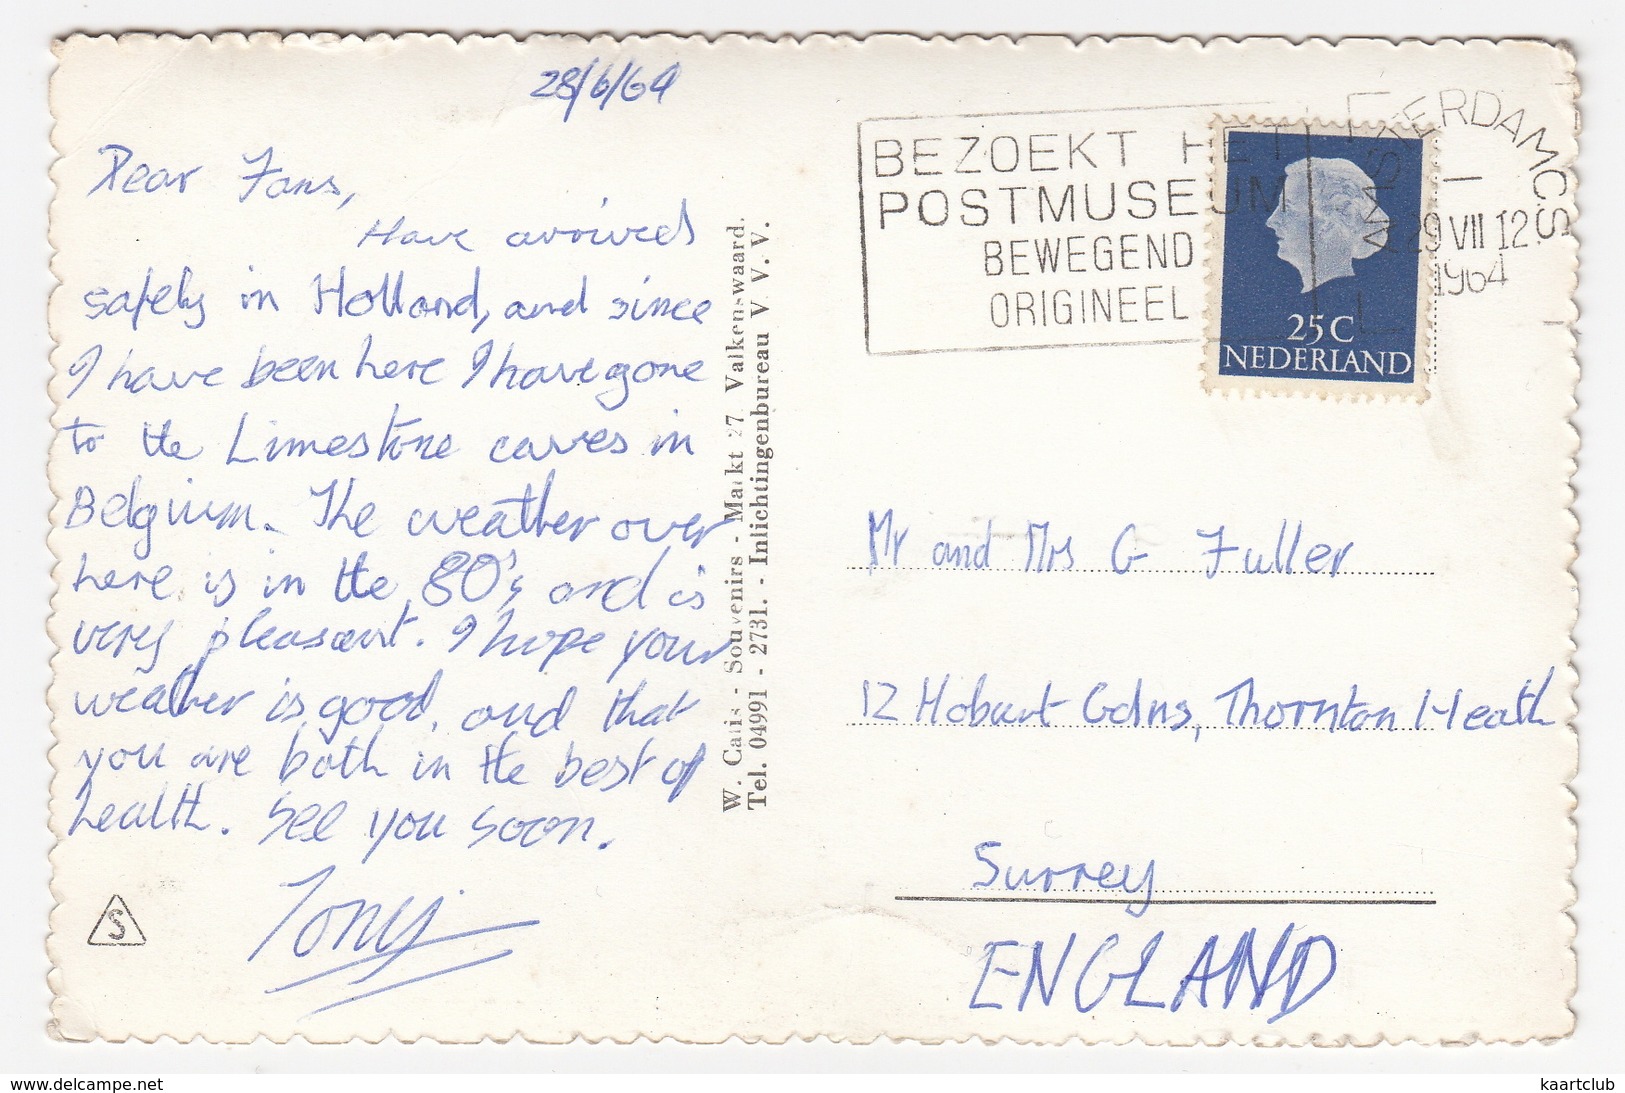 28/6/64
Dear Fans,
Have arrived
safely in Holland, and since
I have been here I have gone
to the Limestone caves in
Belgium. The weather over
here is in the 80's and is
very pleasant. I hope your
weather is good, and that
you are both in the best of
health. See you soon.
Tony
S
W. Cais - Souvenirs - Markt 27 Valkenswaard.
Tel. 04991 - 2731. - Inlichtingenbureau V. V. V.
BEZOEKT HET
POSTMUSEUM
BEWEGEND
ORIGINEEL
AMSTERDAM C.S.
29 VII 12
1964
25C
NEDERLAND
Mr and Mrs G Fuller
12 Hobart Gdns, Thornton Heath
Surrey
ENGLAND
delcampe.net
kaartclub